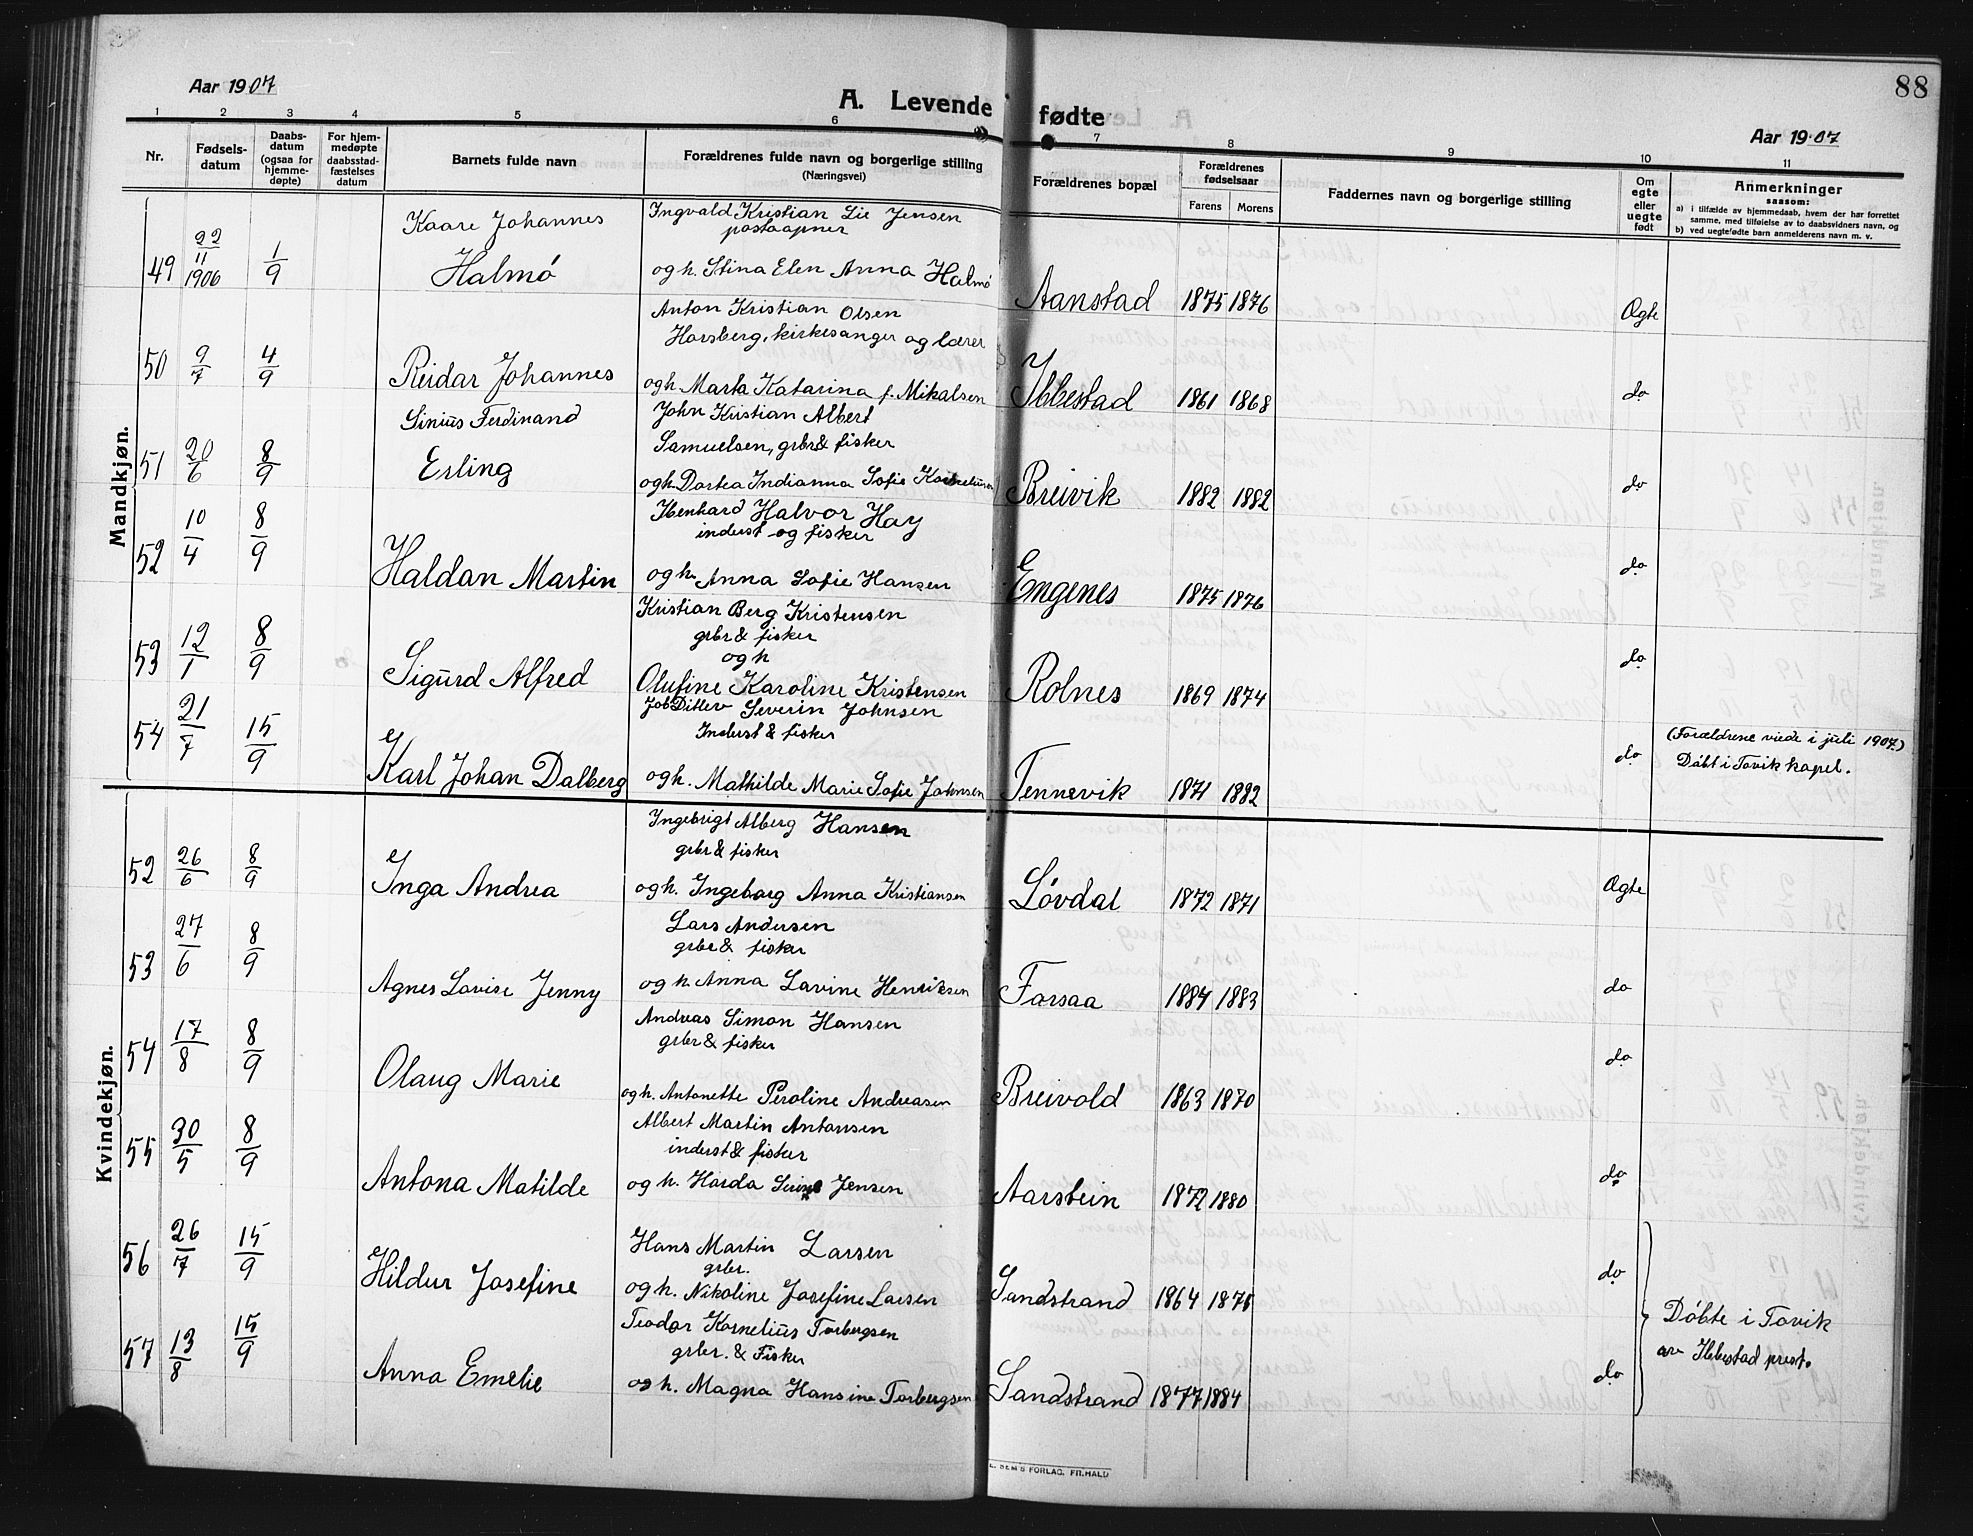 88
Aar 1907
A. Levende fødte
Aar 1907
1 2 3 4 5 6 7 8 9 10 11
Nr.
Fødsels-
datum
Daabs-
datum
(ogsaa for
hjemme-
døpte)
For hjem-
medøpte
daabsstad-
fæstelses
datum
Barnets fulde navn
Forældrenes fulde navn og borgerlige stilling
(Næringsvei)
Forældrenes bopæl
Forældrenes
fødselsaar
Farens Morens
Faddernes navn og borgerlige stilling
Om
egte
eller
uegte
født
Anmerkninger
saasom:
a) i tilfælde av hjemmedaab, hvem der har forrettet
samme, med tilføielse av to daabsvidners navn, og
b) ved uegtefødte barn anmelderens navn m. v.
Mandkjøn.
Kaare Johannes Ingvald Kristian Lie Jensen
postaapner
49 22/11 1906 1/9 Halmø og h. Stina Elen Anna Halmø Aanstad 1875 1876 Ogte
Anton Kristian Olsen
Horsberg, kirkesanger og lærer
50 9/7 4/9 Reidar Johannes og h. Marta Katarina f. Mikalsen Ibbestad 1861 1868 do
Sinius Ferdinand John Kristian Albert
Samuelsen, grbr & fisker
51 20/6 8/9 Erling og h. Dortea Indianna Sofie Kornelius Breivik 1882 1882 do
Ibenhard Halvor Hay
inderst og fisker
52 10/4 8/9 Haldan Martin og h. Anna Sofie Hansen Engenes 1875 1876 do
Kristian Berg Kristensen
grbr & fisker
og h
53 12/1 8/9 Sigurd Alfred Olufine Karoline Kristensen Rolnes 1869 1874 do
Job Ditlev Severin Johnsen
Inderst & fisker
54 21/7 15/9 Karl Johan Dalberg og h. Mathilde Marie Sofie Johnsen Tennevik 1871 1882 do
(Forældrene viede i juli 1907.)
Døbt i Tovik kapel.
Kvindekjøn.
Ingebrigt Alberg Hansen
grbr & fisker
52 26/6 8/9 Inga Andrea og h. Ingeborg Anna Kristiansen Løvdal 1872 1871 Ogte
Lars Andersen
grbr & fisker
53 27/6 8/9 Agnes Lovise Jenny og h. Anna Lavine Henriksen Forsaa 1884 1883 do
Andreas Simon Hansen
grbr & fisker
54 17/8 8/9 Olaug Marie og h. Antonette Peroline Andreasen Breivold 1863 1870 do
Albert Martin Antonsen
inderst & fisker
55 30/5 8/9 Antona Matilde og h. Harda Jensen Aarstein 1872 1880 do
Hans Martin Larsen
grbr.
56 26/7 15/9 Hildur Josefine og h. Nikoline Josefine Larsen Sandstrand 1864 1875 do
Teodor Kornelius Torbergsen
grbr. & Fisker
57 13/8 15/9 Anna Emelie og h. Magna Hansine Torbergsen Sandstrand 1877 1884 do
Døbte i Tovik
av Ibbestad prest.
SEM'S FORLAG, FR.HALD